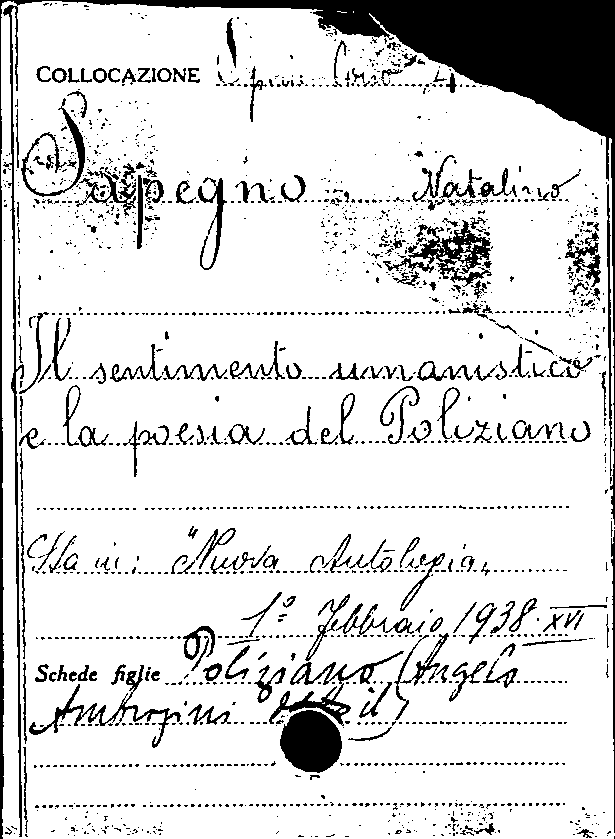 COLLOCAZIONE
Sapegno Natalino
Il sentimento umanistico
e la poesia del Poliziano
Sta in: "Nuova Antologia„
1º Febbraio 1938-XVI
Schede figlie Poliziano (Angelo
Ambrogini detto il)